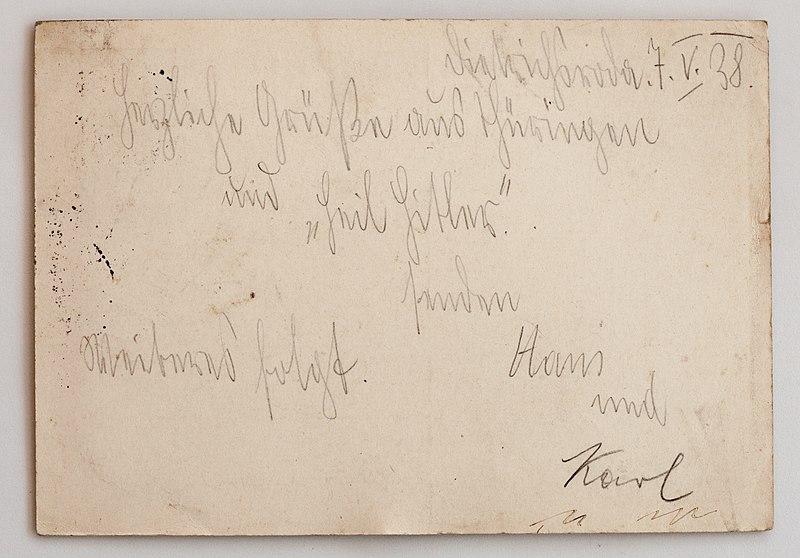 Dietrichsroda. 7. V. 38.
Herzliche Grüße aus Thüringen
und „Heil Hitler“.
senden
Weiteres folgt. Hans
und
Karl